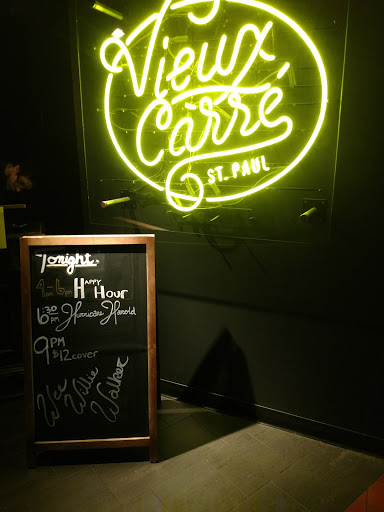 Vieux
Carré
ST. PAUL
Tonight
4pm-6pm Happy Hour
6:30 PM Hurricane Harold
9 PM
$12 cover
Wee
Willie
Walker